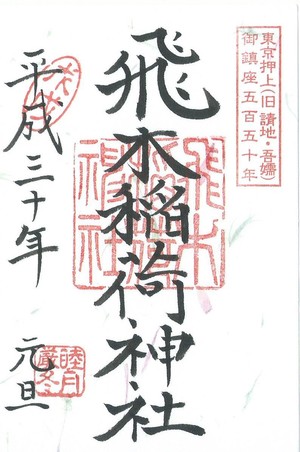 東京押上(旧請地・吾嬬)
御鎮座五百五十年
飛木稲荷神社
飛木稲荷神社
平成三十年 元旦
睦月
厳冬